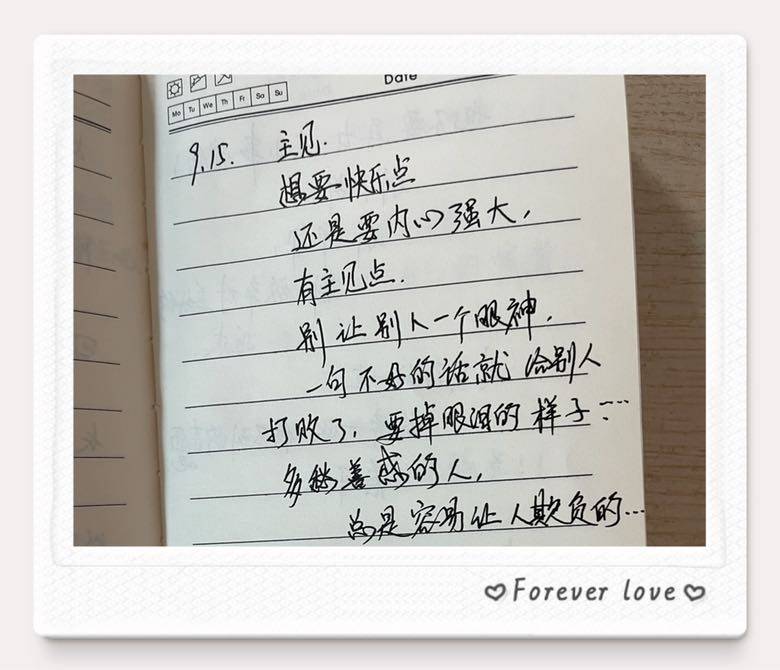 Date
Mo Tu We Th Fr Sa Su
9.15. 主见.
想要快乐点
还是要内心强大,
有主见点.
别让别人一个眼神,
一句不好的话就给别人
打败了,要掉眼泪的样子…
多愁善感的人,
总是容易让人欺负的…
♡Forever love♡